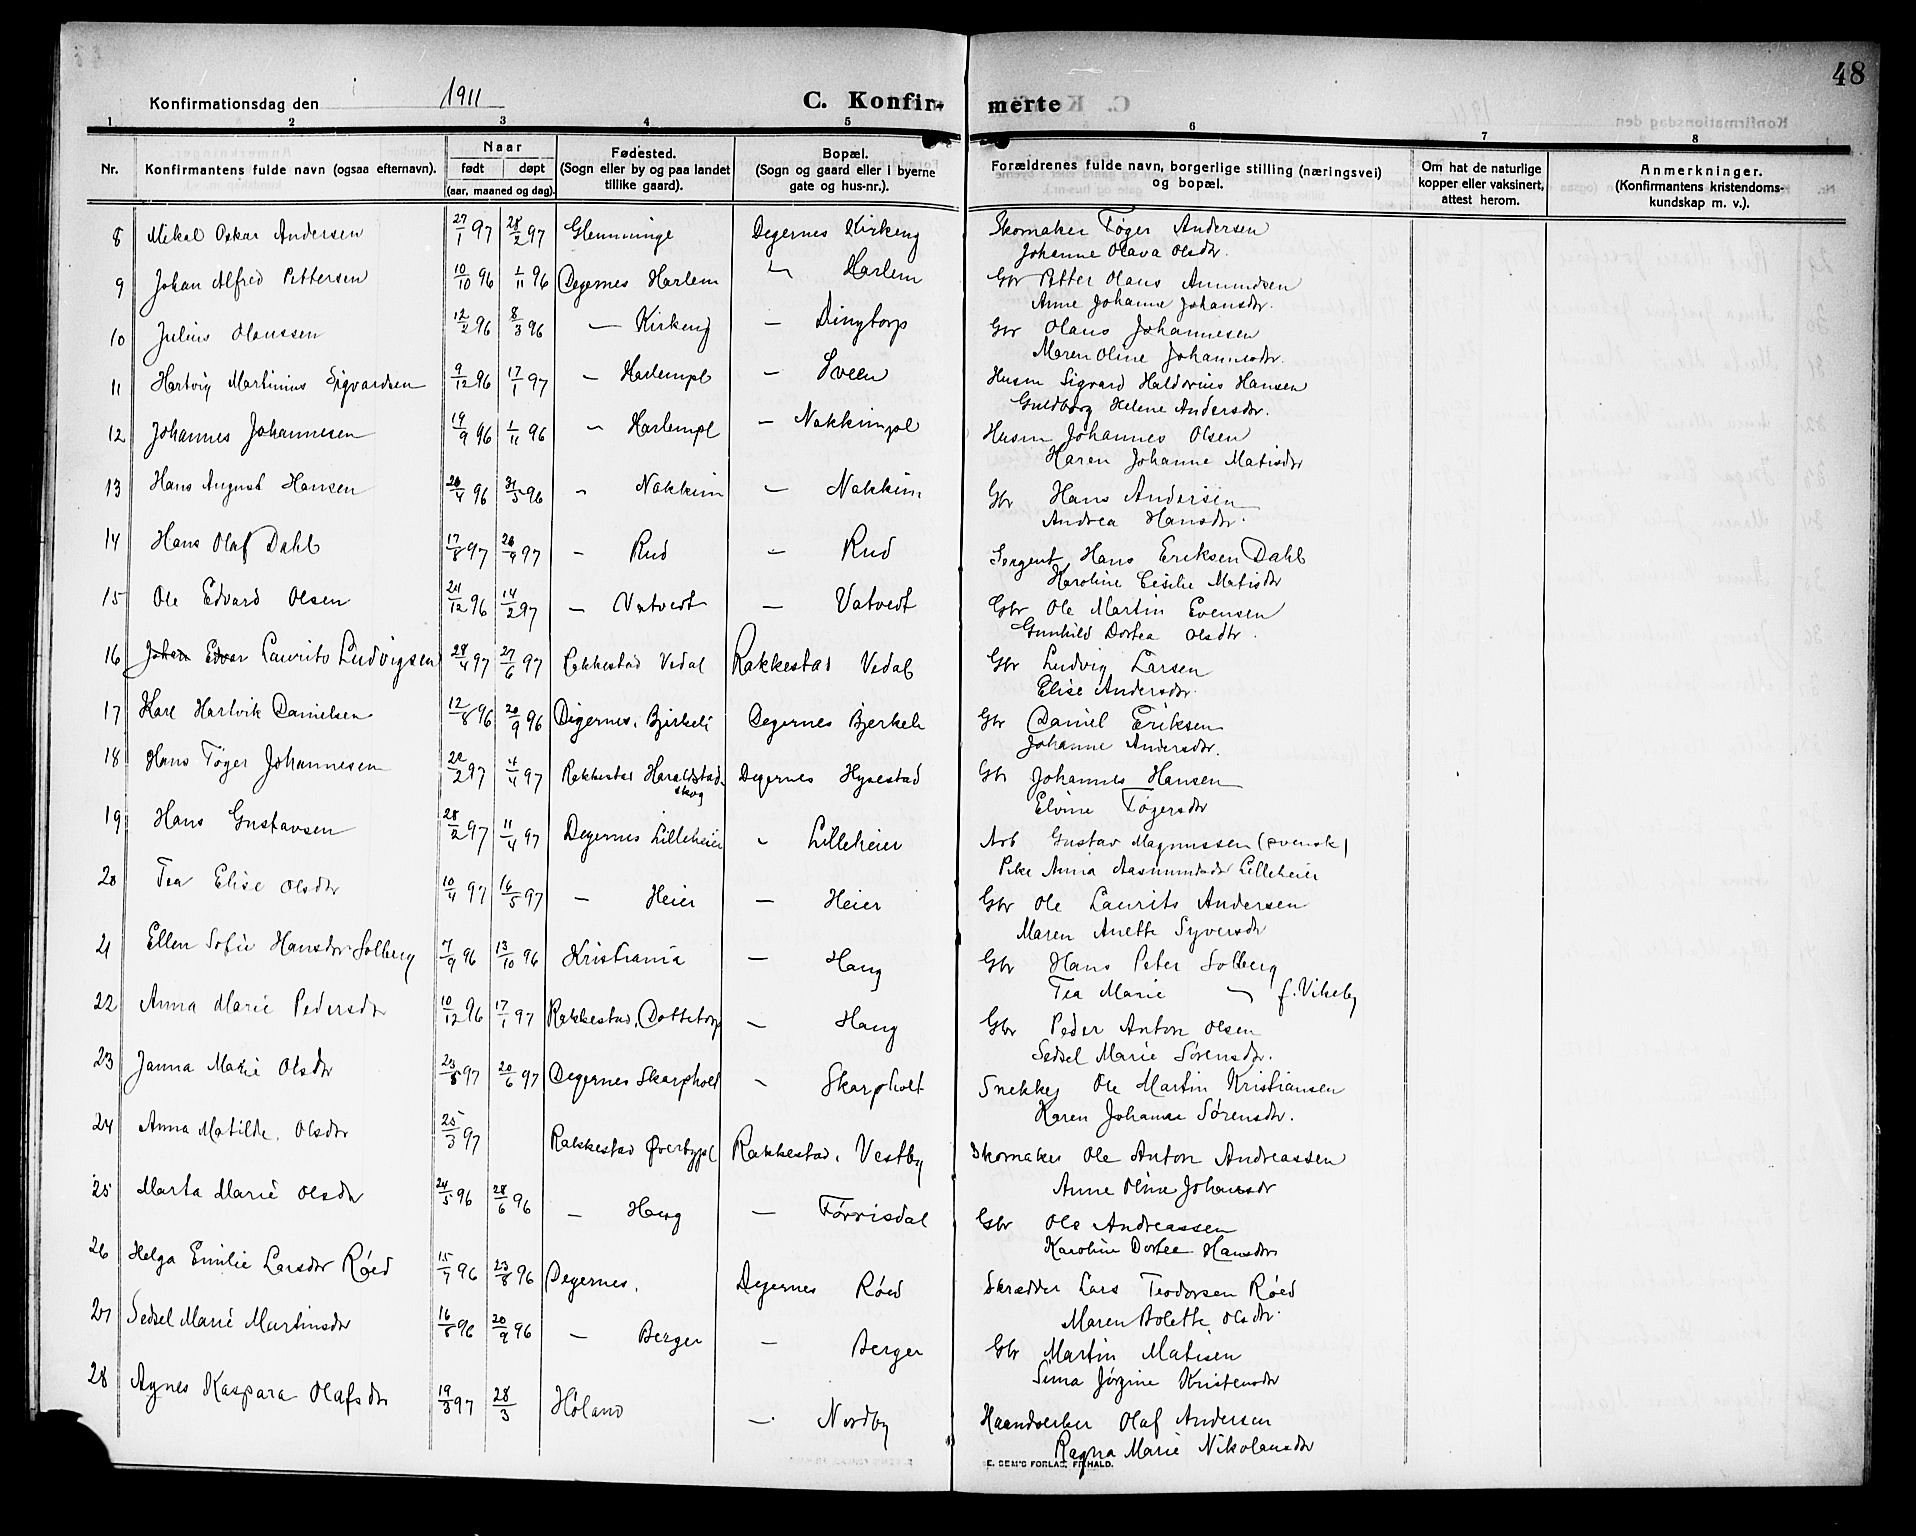 48
Konfirmationsdag den i 1911
C. Konfir- merte
1 2 3 4 5 6 7 8
Nr. Konfirmantens fulde navn (ogsaa efternavn). Naar født døpt (aar, maaned og dag). Fødested. (Sogn eller by og paa landet tillike gaard). Bopæl. (Sogn og gaard eller i byerne gate og hus-nr.). Forældrenes fulde navn, borgerlige stilling (næringsvei) og bopæl. Om hat de naturlige kopper eller vaksinert, attest herom. Anmerkninger. (Konfirmantens kristendoms-kundskap m. v.).
8 Mikal Oskar Andersen 27/1 97 28/2 97 Glemminge Degernes Kirkeng Skomaker Tøger Andersen
Johanne Olava Olsdtr.
9 Johan Alfred Pettersen 10/10 96 1/11 96 Degernes Harlem " Harlem Gbr Petter Olaus Amundsen
Anne Johanne Johansdtr.
10 Julius Olaussen 12/2 96 8/3 96 — Kirkeng — Dingtorp Gbr Olaus Johannesen
Maren Oline Johannesdtr.
11 Hartvig Martinius Sigvardsen 9/12 96 17/1 97 — Harlempl — Sveen Husm Sigvard Haldorius Hansen
Guldborg Helene Andersdtr.
12 Johannes Johannesen 19/9 96 1/11 96 — Harlempl — Nakkimpl Husm Johannes Olsen
Karen Johanne Matisdtr
13 Hans August Hansen 26/4 96 31/5 96 — Nakkim — Nakkim Gbr Hans Andersen
Andrea Hansdtr.
14 Hans Olaf Dahl 17/8 97 26/9 97 — Rud — Rud Sergent Hans Eriksen Dahl
Karoline Cesilie Matisdtr
15 Ole Edvard Olsen 24/12 96 14/2 97 — Vatvedt — Vatvedt Gbr Ole Martin Evensen
Gunhild Dortea Olsdtr.
16 Johan Edvar Laurits Ludvigsen 28/4 97 27/6 97 Rakkestad Vedal Rakkestad Vedal Gbr Ludvig Larsen
Elise Andersdtr.
17 Karl Hartvik Danielsen 12/8 96 20/9 96 Degernes, Bjerkeli Degernes Bjerkeli Gbr Daniel Eriksen
Johanne Andersdtr.
18 Hans Tøger Johannesen 22/2 97 4/4 97 Rakkestad Haraldstad skog Degernes Hysestad Gbr Johannes Hansen
Elvine Tøgersdtr
19 Hans Gustavsen 28/2 97 11/4 97 Degernes Lilleheier " Lilleheier Arb Gustav Magnussen (svensk)
Pike Anna Aasmundsdtr Lilleheier
20 Tea Elise Olsdtr 10/4 97 16/5 97 — Heier — Heier Gbr Ole Laurits Andersen
Maren Anette Syversdtr
21 Ellen Sofie Hansdtr Solberg 7/9 96 13/10 96 Kristiania — Haug Gbr Hans Peter Solberg
Tea Marie — f. Vikeby
22 Anna Marie Pedersdtr 10/12 96 17/1 97 Rakkestad, Dottetorp — Haug Gbr Peder Anton Olsen
Sedsel Marie Sørensdtr.
23 Janna Marie Olsdtr 23/5 97 20/6 97 Degernes Skarpholt " Skarpholt Snekker Ole Martin Kristiansen
Karen Johanne Sørensdtr.
24 Anna Matilde Olsdtr 25/3 97 Rakkestad Øverbypl Rakkestad, Vestby Skomaker Ole Anton Andreassen
Anne Oline Johansdtr
25 Marta Marie Olsdtr 24/5 96 28/6 96 — Haug — Tørrisdal Gbr Ole Andreassen
Karoline Dortee Hansdtr
26 Helga Emilie Larsdtr Røed 15/7 96 23/8 96 Degernes. Degernes Røed Skrædder Lars Teodorsen Røed
Maren Bolette Olsdtr.
27 Sedsel Marie Martinsdtr 16/8 96 20/9 96 — Berger — Berger Gbr Martin Matisen
Sina Jørgine Kristensdtr
28 Agnes Kaspara Olafsdtr 19/3 97 28/3 Høland — Nordby Haandverker Olaf Andersen
Ragna Marie Nikolausdtr
E. SEM'S FORLAG, FR.HALD.